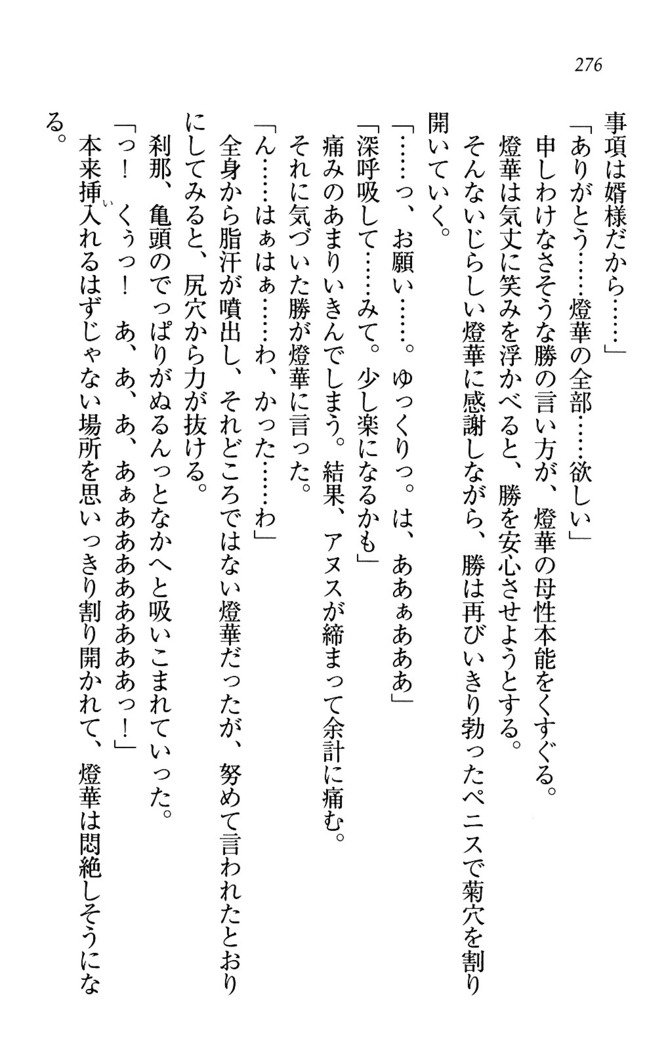 276
事項は婿様だから……」
「ありがとう……燈華の全部……欲しい」
申しわけなさそうな勝の言い方が、燈華の母性本能をくすぐる。
燈華は気丈に笑みを浮かべると、勝を安心させようとする。
そんないじらしい燈華に感謝しながら、勝は再びいきり勃ったペニスで菊穴を割り
開いていく。
「……っ、お願い……。ゆっくりっ。は、ああぁあああ」
「深呼吸して……みて。少し楽になるかも」
痛みのあまりいきんでしまう。結果、アヌスが締まって余計に痛む。
それに気づいた勝が燈華に言った。
「ん……はぁはぁ……わ、かった……わ」
全身から脂汗が噴出し、それどころではない燈華だったが、努めて言われたとおり
にしてみると、尻穴から力が抜ける。
刹那、亀頭のでっぱりがぬるんっとなかへと吸いこまれていった。
「っ！　くぅっ！　あ、あ、あ、あぁあああああああああっ！」
本来挿入れるはずじゃない場所を思いっきり割り開かれて、燈華は悶絶しそうにな
る。